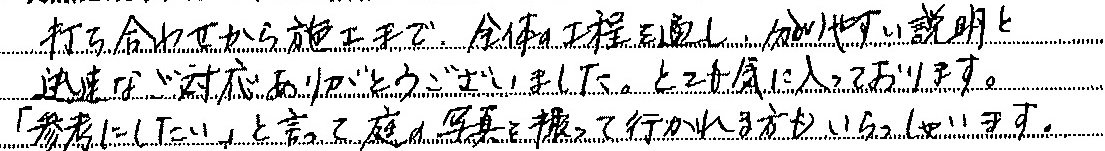 打ち合わせから施工まで、全体の工程を通し、分かりやすい説明と
迅速なご対応ありがとうございました。とても気に入っております。
「参考にしたい」と言って庭の写真を撮って行かれる方もいらっしゃいます。